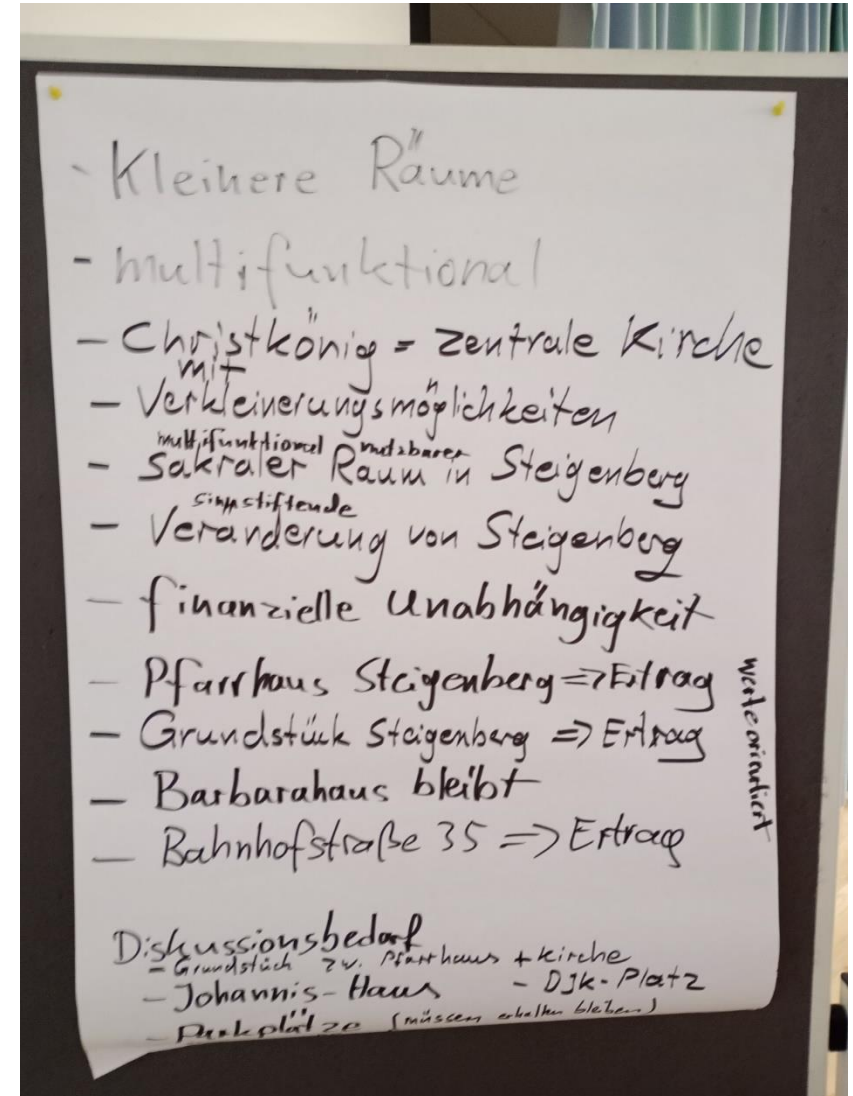 - Kleinere Räume
- multifunktional
- Christkönig = zentrale Kirche
mit
- Verkleinerungsmöglichkeiten
multifunktional nutzbarer
- Sakraler Raum in Steigenberg
sinnstiftende
- Veränderung von Steigenberg
- finanzielle Unabhängigkeit
- Pfarrhaus Steigenberg => Ertrag
- Grundstück Steigenberg => Ertrag
- Barbarahaus bleibt
- Bahnhofstraße 35 => Ertrag
werteorientiert
Diskussionsbedarf
- Grundstück zw. Pfarrhaus + Kirche
- Johannis-Haus - DJK-Platz
- Parkplätze (müssen erhalten bleiben)